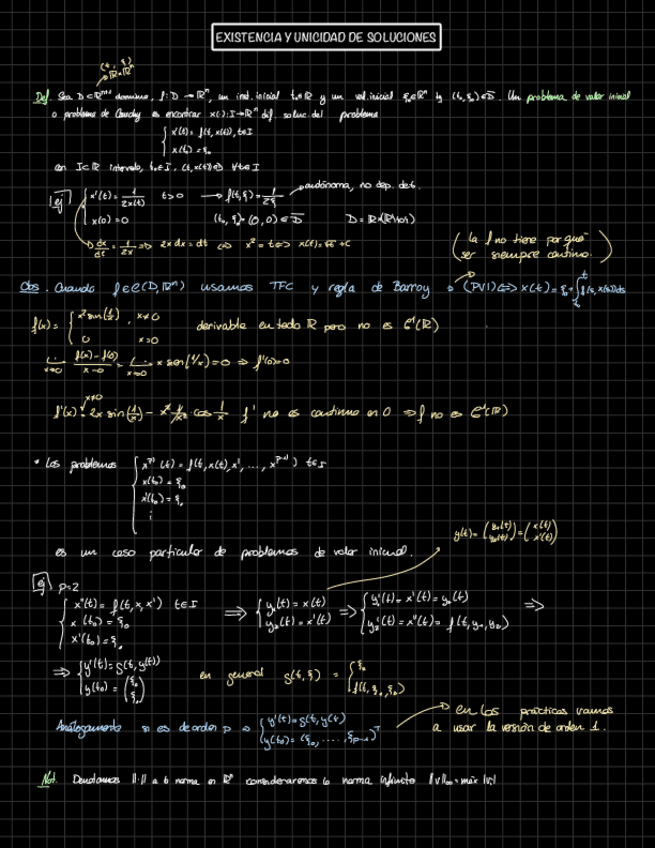 EXISTENCIA Y UNICIDAD DE SOLUCIONES
(t, ξ)
ℝ×ℝⁿ
Def. Sea D⊂ℝⁿ⁺¹ dominio, f: D → ℝⁿ, un inst. inicial t₀∈ℝ y un val. inicial ξ₀∈ℝⁿ tq (t₀, ξ₀)∈D̅. Un problema de valor inicial
o problema de Cauchy es encontrar x(·): I→ℝⁿ dif. soluc. del problema
{ x'(t) = f(t, x(t)), t∈I
x(t₀) = ξ₀
con I⊂ℝ intervalo, t₀∈I, (t, x(t))∈D ∀t∈I
ej { x'(t) = 1/2x(t) t>0 → f(t,ξ) = 1/2ξ → autónoma, no dep. de t.
x(0) = 0 (t₀, ξ₀) = (0,0) ∈ D̅ D = ℝ×(ℝ\{0})
dx/dt = 1/2x => 2x dx = dt <=> x² = t <=> x(t) = √t + C
( la f no tiene por qué ser siempre continua. )
Obs. Cuando f∈C(D,ℝⁿ) usamos TFC y regla de Barrow → (PVI) <=> x(t) = ξ₀ + ∫ₜ₀ᵗ f(s, x(s))ds
f(x) = { x² sin(1/x), x≠0
0 x=0
derivable en todo ℝ pero no es C¹(ℝ)
lim x→0 f(x)-f(0)/x-0 = lim x→0 x sen(1/x) = 0 => f'(0)=0
x≠0
f'(x) = 2x sin(1/x) - x² 1/x² cos 1/x f' no es continua en 0 => f no es C¹(ℝ)
* Los problemas { x^(p)(t) = f(t, x(t), x', ..., x^(p-1)) t∈I
x(t₀) = ξ₀
x'(t₀) = ξ₁
⋮
es un caso particular de problemas de valor inicial.
y(t) = (y₁(t) y₂(t)) = (x(t) x'(t))
ej p=2
{ x''(t) = f(t, x, x') t∈I
x(t₀) = ξ₀
x'(t₀) = ξ₁
=> { y₁(t) = x(t)
y₂(t) = x'(t)
=> { y₁'(t) = x'(t) = y₂(t)
y₂'(t) = x''(t) = f(t, y₁, y₂)
=>
=> { y'(t) = g(t, y(t))
y(t₀) = (ξ₀ ξ₁)
en general g(t, ξ) = {
Análogamente si es de orden p → { y'(t) = g(t, y(t)
y(t₀) = (ξ₀, ...., ξp-1)ᵀ
→ en las prácticas vamos
a usar la versión de orden 1.
Not. Denotamos ‖·‖ a la norma en ℝⁿ consideraremos la norma infinito ‖v‖∞ = máx |vᵢ|